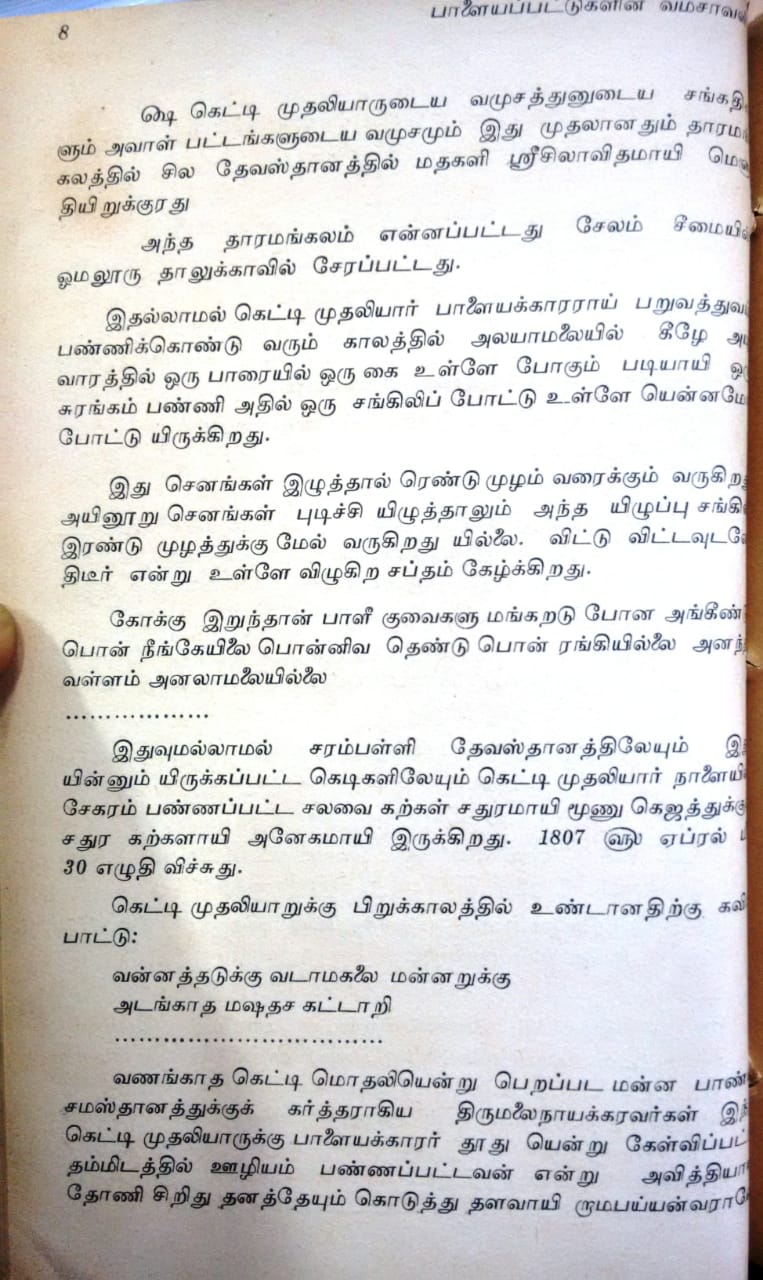 8
பாளையப்பட்டுகளின் வம்சாவளி
௸ கெட்டி முதலியாருடைய வமுசத்துனுடைய சங்கதி
ளும் அவாள் பட்டங்களுடைய வமுசமும் இது முதலானதும் தாரமங்
கலத்தில் சில தேவஸ்தானத்தில் மதகளி ஸ்ரீசிலாவிதமாயி
தியிறுக்குரது
அந்த தாரமங்கலம் என்னப்பட்டது சேலம் சீமையில்
ஓமலூரு தாலுக்காவில் சேரப்பட்டது.
இதல்லாமல் கெட்டி முதலியார் பாளையக்காரராய் பறுவத்துவ
பண்ணிக்கொண்டு வரும் காலத்தில் அலயாமலையில் கீழே அடி
வாரத்தில் ஒரு பாரையில் ஒரு கை உள்ளே போகும் படியாயி ஒரு
சுரங்கம் பண்ணி அதில் ஒரு சங்கிலிப் போட்டு உள்ளே யென்னமோ
போட்டு யிருக்கிறது.
இது செனங்கள் இழுத்தால் ரெண்டு முழம் வரைக்கும் வருகிறது
அயினூறு செனங்கள் புடிச்சி யிழுத்தாலும் அந்த யிழுப்பு சங்கிலி
இரண்டு முழத்துக்கு மேல் வருகிறது யில்லை. விட்டு விட்டவுடனே
திடீர் என்று உள்ளே விழுகிற சப்தம் கேழ்க்கிறது.
கோக்கு இறுந்தான் பாளீ குவைகளு மங்கறடு போன அங்கீண்
பொன் நீங்கேயிலை பொன்னிவ தெண்டு பொன் ரங்கியில்லை அனந்
வள்ளம் அனலாமலையில்லை
..................
இதுவுமல்லாமல் சரம்பள்ளி தேவஸ்தானத்திலேயும் இத
யின்னும் யிருக்கப்பட்ட கெடிகளிலேயும் கெட்டி முதலியார் நாளையில்
சேகரம் பண்ணப்பட்ட சலவை கற்கள் சதுரமாயி மூணு கெஜத்துக்கு
சதுர கற்களாயி அனேகமாயி இருக்கிறது. 1807 ௵ ஏப்ரல்
30 எழுதி விச்சுது.
கெட்டி முதலியாறுக்கு பிறுக்காலத்தில் உண்டானதிற்கு கவி
பாட்டு:
வன்னத்தடுக்கு வடாமகலை மன்னறுக்கு
அடங்காத மஷதச கட்டாறி
.................................
வணங்காத கெட்டி மொதலியென்று பெறப்பட மன்ன பாண்
சமஸ்தானத்துக்குக் கர்த்தராகிய திருமலைநாயக்கரவர்கள் இந்
கெட்டி முதலியாருக்கு பாளையக்காரர் தூது யென்று கேள்விப்பட்
தம்மிடத்தில் ஊழியம் பண்ணப்பட்டவன் என்று அவித்தியா
தோணி சிறிது தனத்தேயும் கொடுத்து தளவாயி ருமபய்யன்வராலே